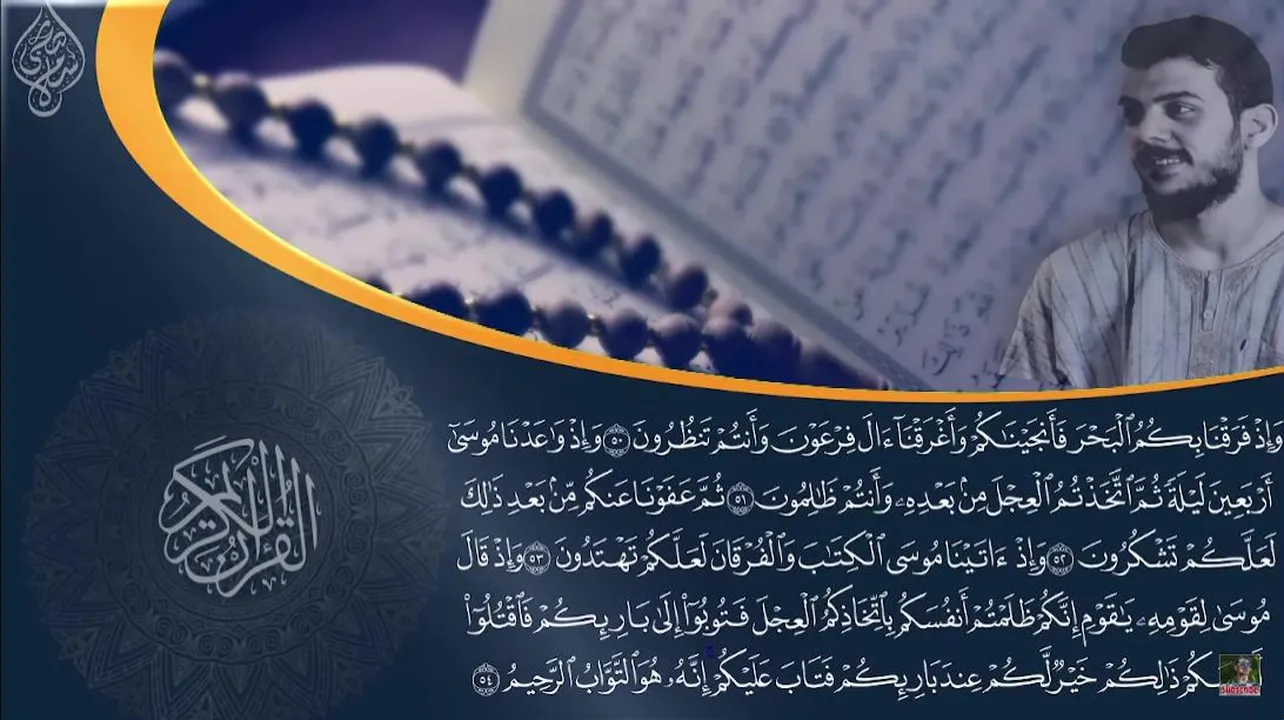 إسلام صبحي
القرآن الكريم
وَإِذْ فَرَقْنَا بِكُمُ ٱلْبَحْرَ فَأَنجَيْنَٰكُمْ وَأَغْرَقْنَآ ءَالَ فِرْعَوْنَ وَأَنتُمْ تَنظُرُونَ ٥٠ وَإِذْ وَٰعَدْنَا مُوسَىٰٓ
أَرْبَعِينَ لَيْلَةً ثُمَّ ٱتَّخَذْتُمُ ٱلْعِجْلَ مِنۢ بَعْدِهِۦ وَأَنتُمْ ظَٰلِمُونَ ٥١ ثُمَّ عَفَوْنَا عَنكُم مِّنۢ بَعْدِ ذَٰلِكَ
لَعَلَّكُمْ تَشْكُرُونَ ٥٢ وَإِذْ ءَاتَيْنَا مُوسَى ٱلْكِتَٰبَ وَٱلْفُرْقَانَ لَعَلَّكُمْ تَهْتَدُونَ ٥٣ وَإِذْ قَالَ
مُوسَىٰ لِقَوْمِهِۦ يَٰقَوْمِ إِنَّكُمْ ظَلَمْتُمْ أَنفُسَكُم بِٱتِّخَاذِكُمُ ٱلْعِجْلَ فَتُوبُوٓا۟ إِلَىٰ بَارِئِكُمْ فَٱقْتُلُوٓا۟
ذَٰلِكُمْ خَيْرٌ لَّكُمْ عِندَ بَارِئِكُمْ فَتَابَ عَلَيْكُمْ إِنَّهُۥ هُوَ ٱلتَّوَّابُ ٱلرَّحِيمُ ٥٤
SUBSCRIBE